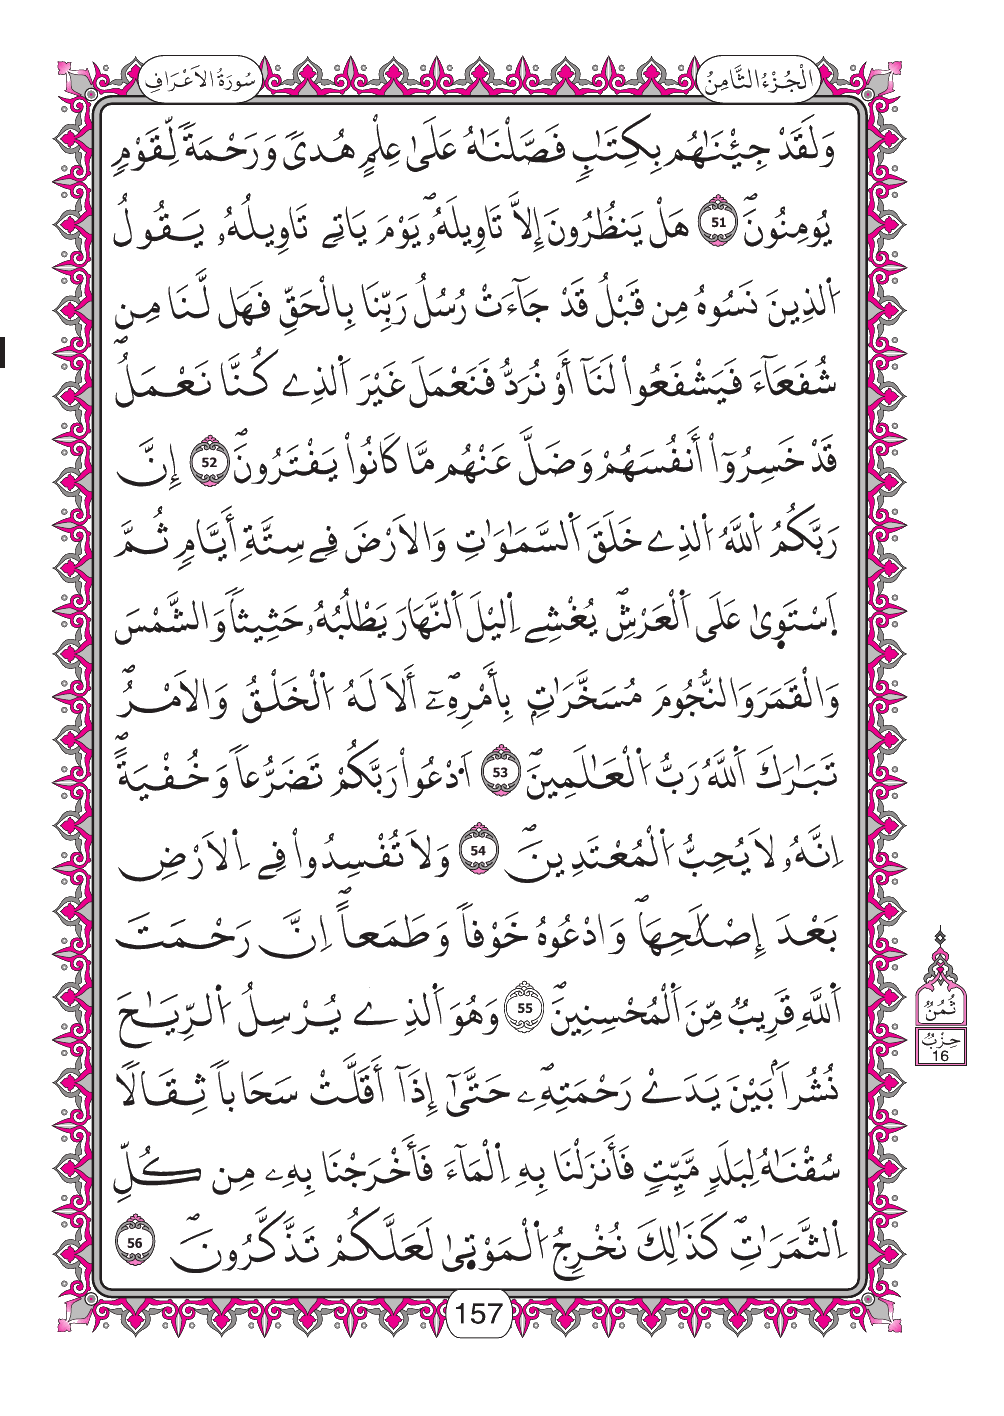 الْجُزْءُ الثَّامِنُ
سُورَةُ الَاعْرَافِ
وَلَقَدْ جِئْنَٰهُم بِكِتَٰبٍ فَصَّلْنَٰهُ عَلَىٰ عِلْمٍ هُدىً وَرَحْمَةً لِّقَوْمٍ
يُومِنُونَۖ 51 هَلْ يَنظُرُونَ إِلاَّ تَاوِيلَهُۥۖ يَوْمَ يَاتِے تَاوِيلُهُۥ يَقُولُ
اُ۬لذِينَ نَسُوهُ مِن قَبْلُ قَدْ جَآءَتْ رُسُلُ رَبِّنَا بِالْحَقِّ فَهَل لَّنَا مِن
شُفَعَآءَ فَيَشْفَعُواْ لَنَآ أَوْ نُرَدُّ فَنَعْمَلَ غَيْرَ اَ۬لذِے كُنَّا نَعْمَلُۖ
قَدْ خَسِرُوٓاْ أَنفُسَهُمْ وَضَلَّ عَنْهُم مَّا كَانُواْ يَفْتَرُونَۖ 52 إِنَّ
رَبَّكُمُ اُ۬للَّهُ اُ۬لذِے خَلَقَ اَ۬لسَّمَٰوَٰتِ وَالَارْضَ فِے سِتَّةِ أَيَّامٍ ثُمَّ
اَ۪سْتَوٜىٰ عَلَى اَ۬لْعَرْشِۖ يُغْشِے اِ۬ليْلَ اَ۬لنَّهَارَ يَطْلُبُهُۥ حَثِيثاً وَالشَّمْسَ
وَالْقَمَرَ وَالنُّجُومَ مُسَخَّرَٰتٍ بِأَمْرِهِۦٓۖ أَلَا لَهُ اُ۬لْخَلْقُ وَالَامْرُۖ
تَبَٰرَكَ اَ۬للَّهُ رَبُّ اُ۬لْعَٰلَمِينَۖ 53 اَ۟دْعُواْ رَبَّكُمْ تَضَرُّعاً وَخُفْيَةًۖ
اِنَّهُۥ لَا يُحِبُّ اُ۬لْمُعْتَدِينَۖ 54 وَلَا تُفْسِدُواْ فِے اِ۬لَارْضِ
بَعْدَ إِصْلَٰحِهَاۖ وَادْعُوهُ خَوْفاً وَطَمَعاًۖ اِنَّ رَحْمَتَ
اَ۬للَّهِ قَرِيبٌ مِّنَ اَ۬لْمُحْسِنِينَۖ 55 وَهُوَ اَ۬لذِے يُرْسِلُ اُ۬لرِّيَٰحَ
نُشُراَۢ بَيْنَ يَدَےْ رَحْمَتِهِۦۖ حَتَّىٰٓ إِذَآ أَقَلَّتْ سَحَاباً ثِقَالًا
سُقْنَٰهُ لِبَلَدٍ مَّيِّتٍ فَأَنزَلْنَا بِهِ اِ۬لْمَآءَ فَأَخْرَجْنَا بِهِۦ مِن كُلِّ
اِ۬لثَّمَرَٰتِۖ كَذَٰلِكَ نُخْرِجُ اُ۬لْمَوْتٜىٰ لَعَلَّكُمْ تَذَّكَّرُونَۖ 56
ثُمُنُ
حِزْبُ
16
157